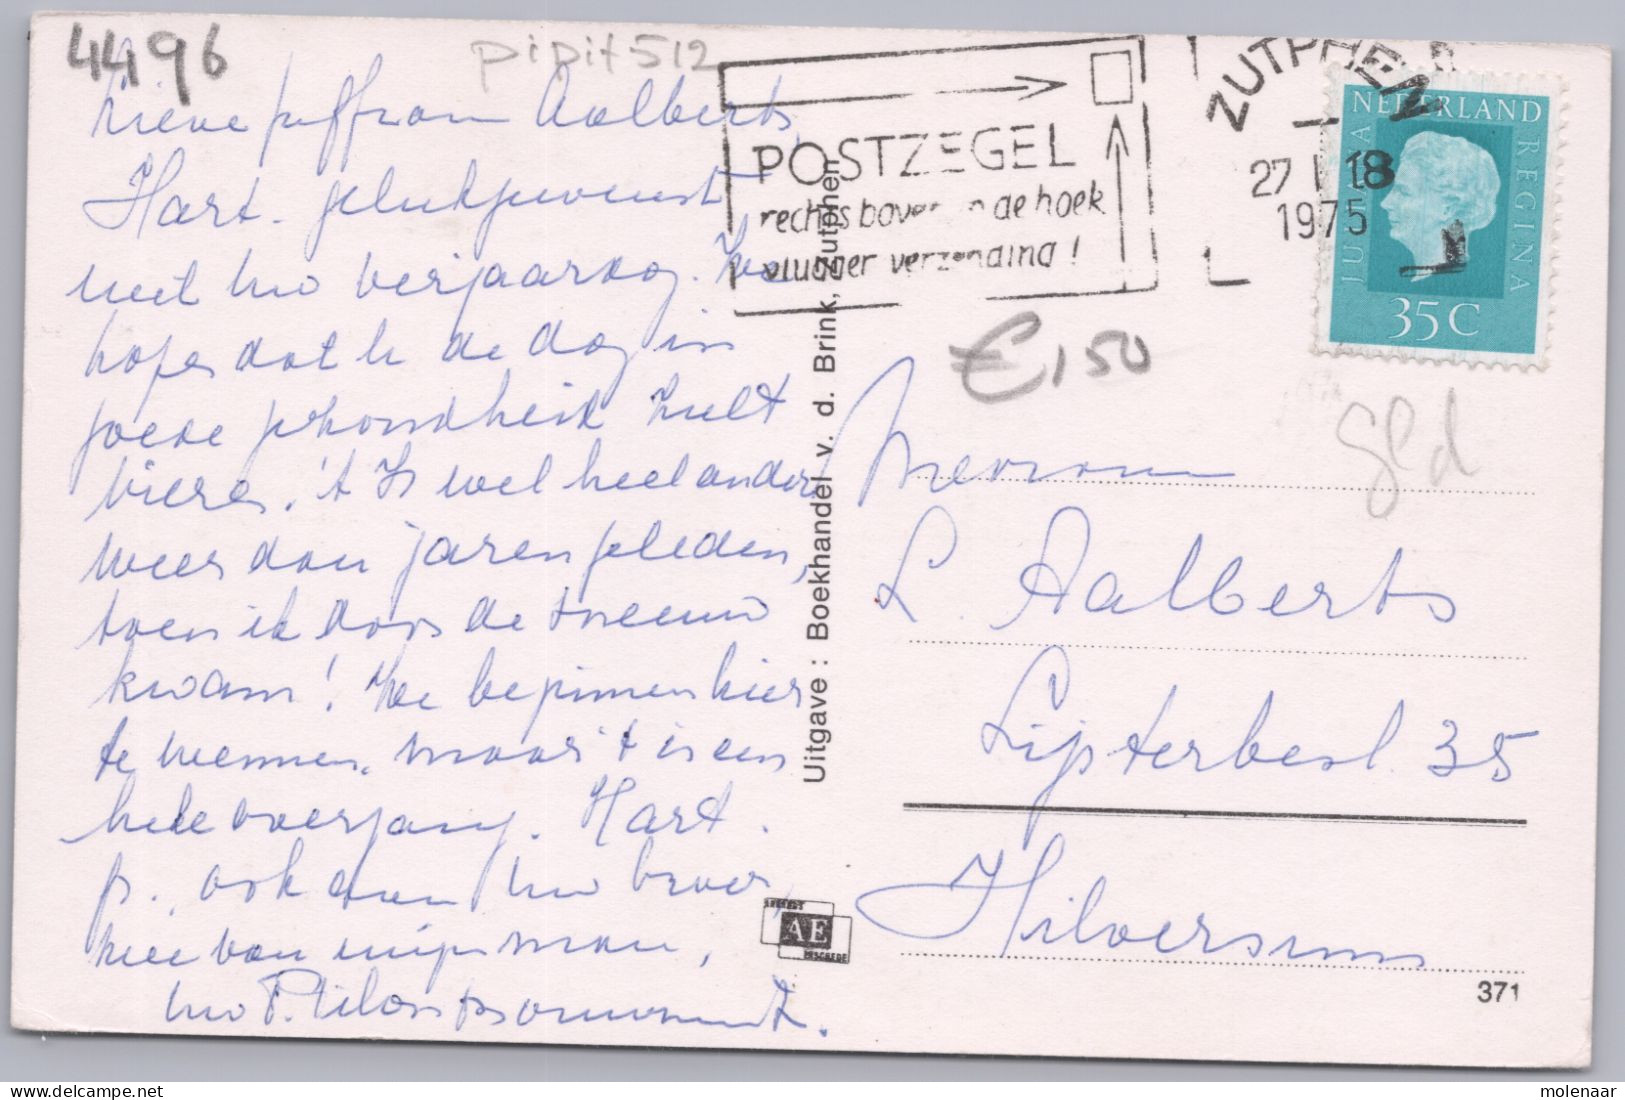 4496
pipit 512
Lieve juffrouw Aalberts,
Hart. gelukgewenst
met Uw verjaardag. We
hopen dat U de dag in
goede gezondheid zult
vieren. 't Is wel heel anders
weer dan jaren geleden,
toen ik door de sneeuw
kwam! We beginnen hier
te wennen, maar 't is een
hele overgang. Hart.
gr. ook aan Uw broer,
mee van mijn man,
Uw
Uitgave : Boekhandel v. d. Brink, Zutphen
AE
POSTZEGEL
rechts boven in de hoek
vlugger verzending !
ZUTPHEN
27 I 18
1975
NEDERLAND
JULIANA REGINA
35 C
€ 1 50
gld
Mevrouw
L. Aalberts
Lijsterbesl. 35
Hilversum
371
molenaar